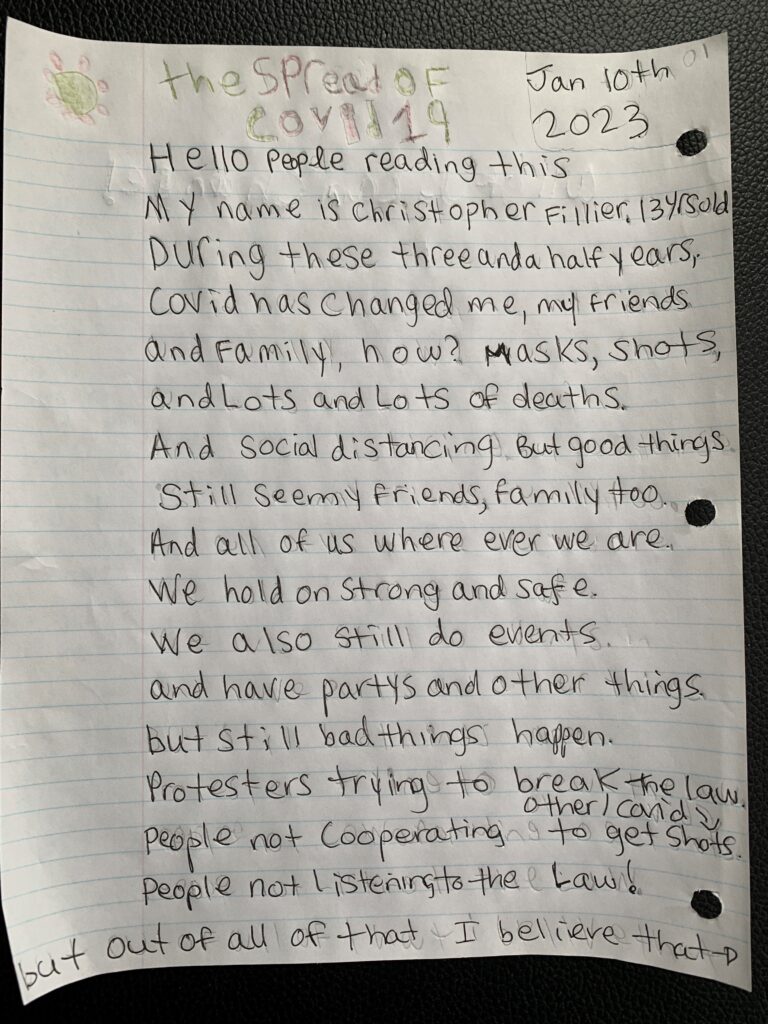 the SPread OF
COVID19
Jan 10th
2023
Hello People reading this
My name is Christopher Fillier, 13 yrs old
During these three and a half years,
Covid has changed me, my friends
and Family, how? Masks, Shots,
and Lots and Lots of deaths.
And Social distancing. But good things
Still See my friends, family too.
And all of us where ever we are.
We hold on Strong and safe.
We also still do events.
and have partys and other things.
but still bad things happen.
Protesters trying to break the law.
other/covid
People not Cooperating to get Shots.
People not Listening to the Law!
but out of all of that I believe that →